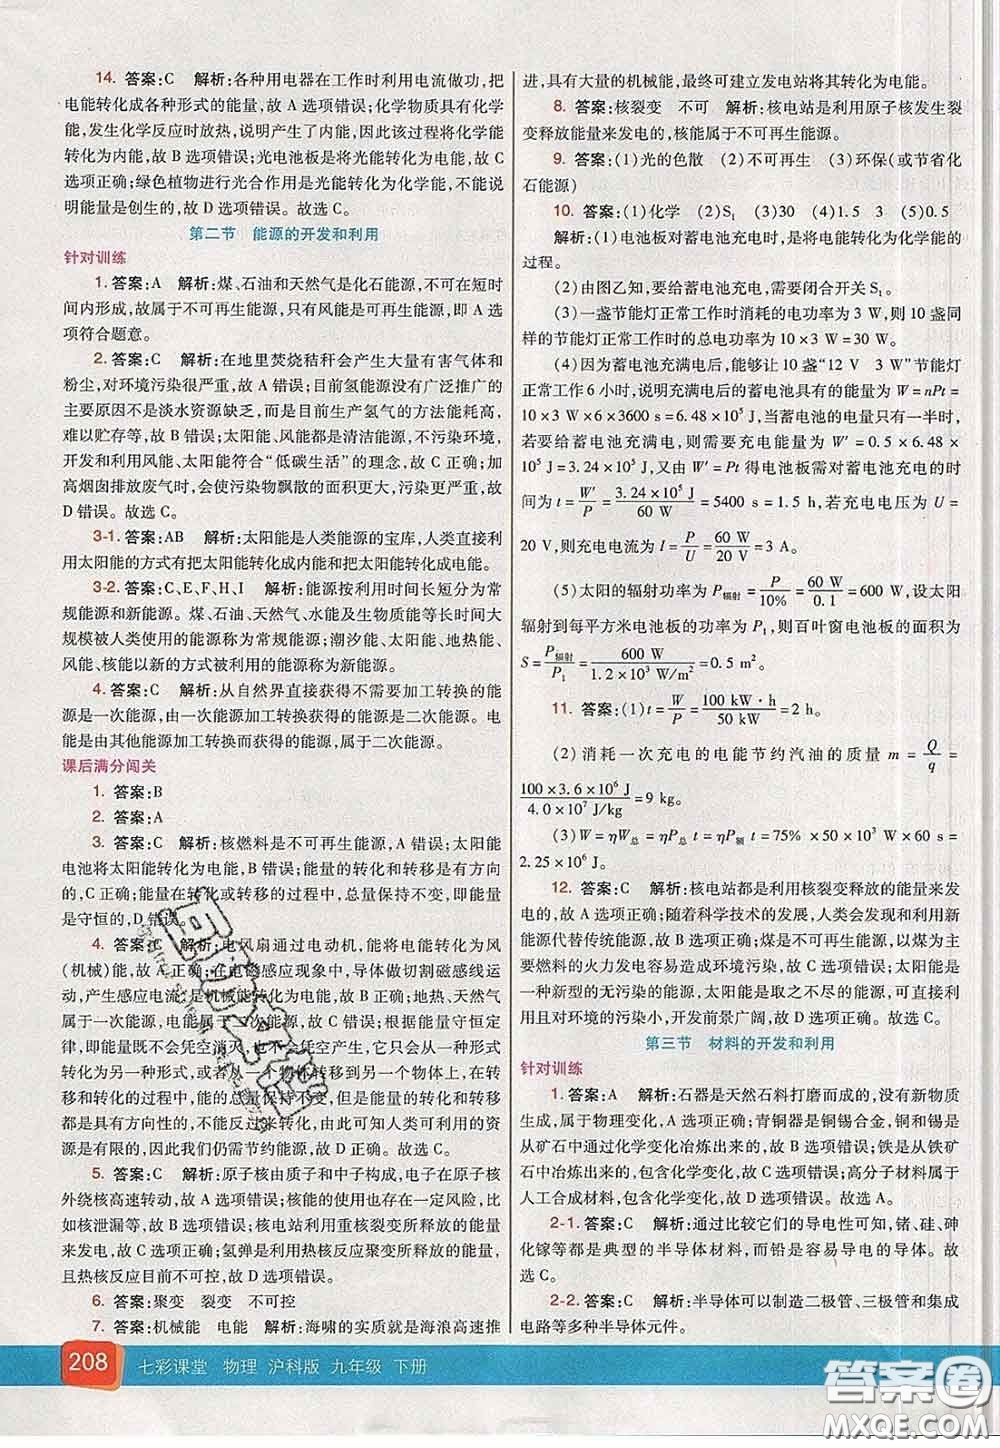 14. 答案:C 解析:各种用电器在工作时利用电流做功,把
电能转化成各种形式的能量,故 A 选项错误;化学物质具有化学
能,发生化学反应时放热,说明产生了内能,因此该过程将化学能
转化为内能,故 B 选项错误;光电池板是将光能转化为电能,故 C
选项正确;绿色植物进行光合作用是光能转化为化学能,不能说
明能量是创生的,故 D 选项错误。故选 C。
第二节 能源的开发和利用
针对训练
1. 答案:A 解析:煤、石油和天然气是化石能源,不可在短时
间内形成,故属于不可再生能源,只有风能是可再生能源,即 A 选
项符合题意。
2. 答案:C 解析:在地里焚烧秸秆会产生大量有害气体和
粉尘,对环境污染很严重,故 A 错误;目前氢能源没有广泛推广的
主要原因不是淡水资源缺乏,而是目前生产氢气的方法能耗高,
难以贮存等,故 B 错误;太阳能、风能都是清洁能源,不污染环境,
开发和利用风能、太阳能符合“低碳生活”的理念,故 C 正确;加
高烟囱排放废气时,会使污染物飘散的面积更大,污染更严重,故
D 错误。故选 C。
3-1. 答案:AB 解析:太阳能是人类能源的宝库,人类直接利
用太阳能的方式有把太阳能转化成内能和把太阳能转化成电能。
3-2. 答案:C、E、F、H、I 解析:能源按利用时间长短分为常
规能源和新能源。煤、石油、天然气、水能及生物质能等长时间大
规模被人类使用的能源称为常规能源;潮汐能、太阳能、地热能、
风能、核能以新的方式被利用的能源称为新能源。
4. 答案:C 解析:从自然界直接获得不需要加工转换的能
源是一次能源,由一次能源加工转换获得的能源是二次能源。电
能是由其他能源加工转换而获得的能源,属于二次能源。
课后满分闯关
1. 答案:B
2. 答案:A
3. 答案:C 解析:核燃料是不可再生能源,A 错误;太阳能
电池将太阳能转化为电能,B 错误;能量的转化和转移是有方向
的,C 正确;能量在转化或转移的过程中,总量保持不变,即能量
是守恒的,D 错误。
4. 答案:C 解析:电风扇通过电动机,能将电能转化为风
(机械)能,故 A 正确;在电磁感应现象中,导体做切割磁感线运
动,产生感应电流,是机械能转化为电能,故 B 正确;地热、天然气
属于一次能源,电能属于二次能源,故 C 错误;根据能量守恒定
律,即能量既不会凭空消灭,也不会凭空产生,它只会从一种形式
转化为另一种形式,或者从一个物体转移到另一个物体,而在转
化和转移的过程中,能量的总量保持不变,但是能量的转化和转移
都是具有方向性的,不可能反过来转化,由此可知人类可利用的
资源是有限的,所以我们仍需节约能源,故 D 正确。故选 C。
5. 答案:C 解析:原子核由质子和中子构成,电子在原子核
外绕核高速转动,故 A 选项错误;核能的利用存在一定风险,比
如核泄漏等,故 B 选项错误;核电站利用重核裂变所释放的能量
来发电,故 C 选项正确;氢弹是利用热核反应聚变所释放的能量,
且热核反应目前不可控,故 D 选项错误。
6. 答案:聚变 裂变 不可控
7. 答案:机械能 电能 解析:海啸的实质就是海浪高速推
进,具有大量的机械能,最终可建立发电站将其转化为电能。
8. 答案:核裂变 不可 解析:核电站是利用原子核发生裂
变释放能量来发电的,核能属于不可再生能源。
9. 答案:(1)光的色散 (2)不可再生 (3)环保(或节省化
石能源)
10. 答案:(1)化学 (2)S₁ (3)30 (4)1.5 3 (5)0.5
解析:(1)电池板对蓄电池充电时,是将电能转化为化学能的
过程。
(2)由图乙知,要给蓄电池充电,需要闭合开关 S₁。
(3)一盏节能灯正常工作时消耗的电功率为 3 W,则 10 盏同
样的节能灯正常工作时的总电功率为 10×3 W=30 W。
(4)因为蓄电池充满电后,能够让 10 盏“12 V 3 W”节能灯
正常工作 6 小时,说明充满电后的蓄电池具有的能量为 W=nPt=
10×3 W×6×3600 s=6.48×10⁵ J,当蓄电池的电量只有一半时,
若要给蓄电池充满电,则需要充电能量为 W′=0.5×6.48×
10⁵ J=3.24×10⁵ J,又由 W′=Pt 得电池板需对蓄电池充电的时
间为 t=W′/P=3.24×10⁵ J/60 W=5400 s=1.5 h,若充电电压为 U=
20 V,则充电电流为 I=P/U=60 W/20 V=3 A。
(5)太阳的辐射功率为 P辐射=P/10%=60 W/0.1=600 W,设太阳
辐射到每平方米电池板的功率为 P₁,则百叶窗电池板的面积为
S=P辐射/P₁=600 W/1.2×10³ W/m²=0.5 m²。
11. 答案:(1)t=W/P=100 kW·h/50 kW=2 h。
(2)消耗一次充电的电能节约汽油的质量 m=Q/q=
100×3.6×10⁶ J/4.0×10⁷ J/kg=9 kg。
(3)W=ηW总=ηP总 t=ηP额 t=75%×50×10³ W×60 s=
2.25×10⁶ J。
12. 答案:C 解析:核电站都是利用核裂变释放的能量来发
电的,故 A 选项正确;随着科学技术的发展,人类会发现和利用新
能源代替传统能源,故 B 选项正确;煤是不可再生能源,以煤为主
要燃料的火力发电容易造成环境污染,故 C 选项错误;太阳能是
一种新型的无污染的能源,太阳能是取之不尽的能源,可直接利
用且对环境的污染小,开发前景广阔,故 D 选项正确。故选 C。
第三节 材料的开发和利用
针对训练
1. 答案:A 解析:石器是天然石料打磨而成的,没有新物质
生成,属于物理变化,A 选项正确;青铜器是铜锡合金,铜和锡是
从矿石中通过化学变化冶炼出来的,故 B 选项错误;铁是从铁矿
石中冶炼出来的,包含化学变化,故 C 选项错误;高分子材料属于
人工合成材料,包含化学变化,故 D 选项错误。故选 A。
2-1. 答案:C 解析:通过比较它们的导电性可知,锗、硅、砷
化镓等都是典型的半导体材料,而铅是容易导电的导体。故
选 C。
2-2. 答案:C 解析:半导体可以制造二极管、三极管和集成
电路等多种半导体元件。
208 七彩课堂 物理 沪科版 九年级 下册
答案圈
MXQE.COM